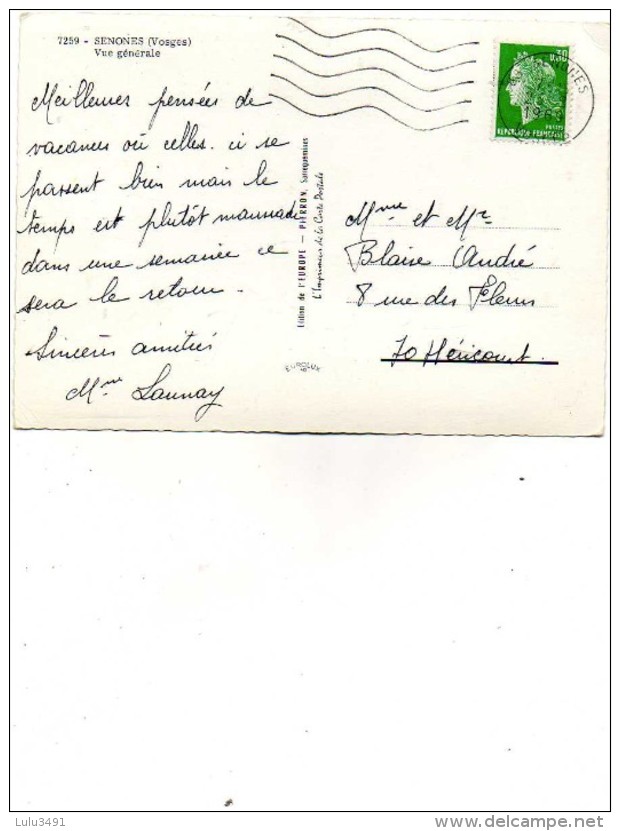 7259 - SENONES (Vosges)
Vue générale
Meilleures pensées de
vacances où celles. ci se
passent bien mais le
temps est plutôt maussade
dans une semaine ce
sera le retour.
Sincères amitiés
Mme Launay
Edition de l'EUROPE — PIERRON, Sarreguemines
L'Imprimeur de la Carte Postale
EUROLUX
0,30
POSTES
REPUBLIQUE FRANÇAISE
Mme et Mr
Blaise André
8 rue des Fleurs
70 Héricourt.
Lulu3491
delcampe.net